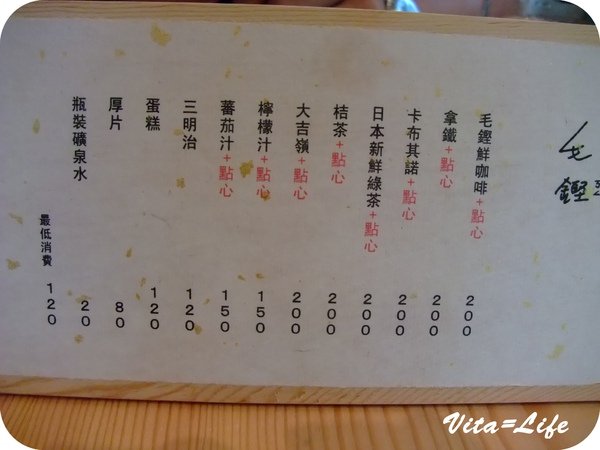 毛鏗鮮咖啡+點心 200
拿鐵+點心 200
卡布其諾+點心 200
日本新鮮綠茶+點心 200
桔茶+點心 200
大吉嶺+點心 200
檸檬汁+點心 150
蕃茄汁+點心 150
三明治 120
蛋糕 120
厚片 80
瓶裝礦泉水 20
最低消費 120
Vita=Life